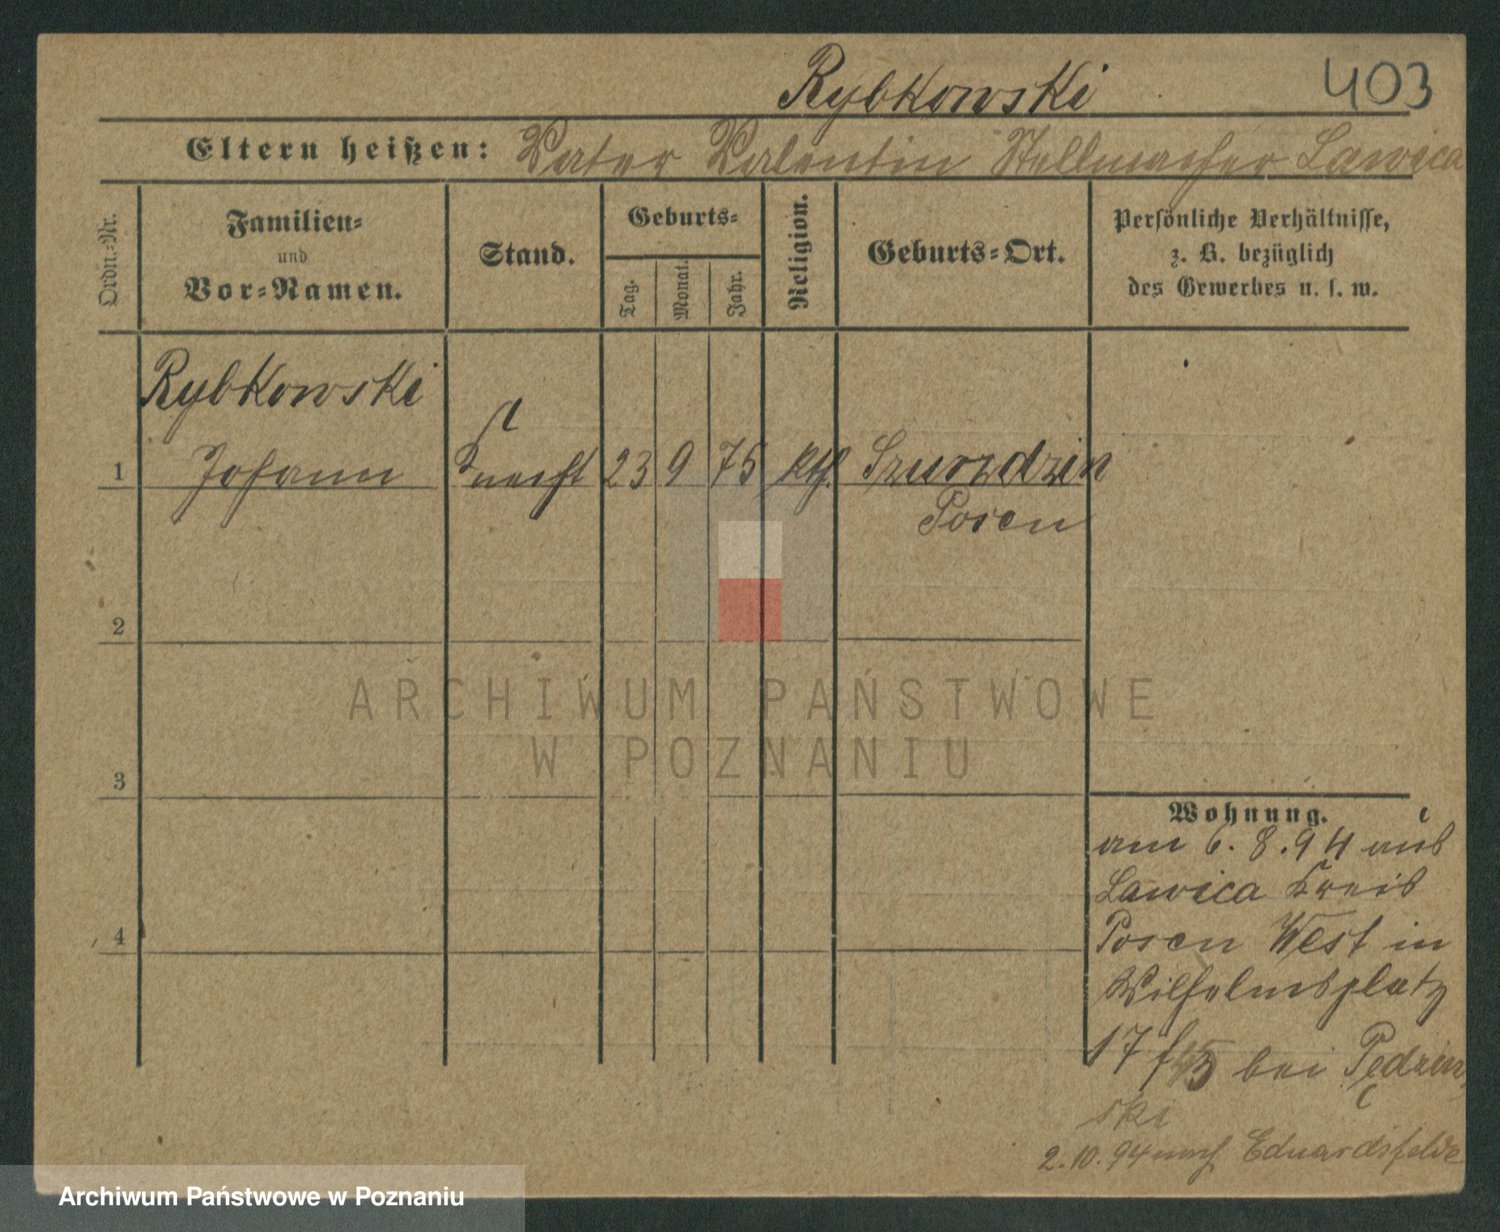 Rybkowski
403
Eltern heißen: Vater Valentin Stellmacher Lawica
Ordn.-Nr.
Familien-
und
Vor-Namen.
Stand.
Geburts-
Tag.
Monat.
Jahr.
Religion.
Geburts-Ort.
Persönliche Verhältnisse,
z. B. bezüglich
des Gewerbes u. s. w.
Rybkowski
1 Johann Knecht 23 9 75 kth. Szurzdzin
Posen
2
3
4
Wohnung.
am 6. 8. 94 aus
Lawica Kreis
Posen West in
Wilhelmsplatz
17 bei Pędzin
ski
2. 10. 94 nach Eduardsfelde
ARCHIWUM PAŃSTWOWE
W POZNANIU
Archiwum Państwowe w Poznaniu